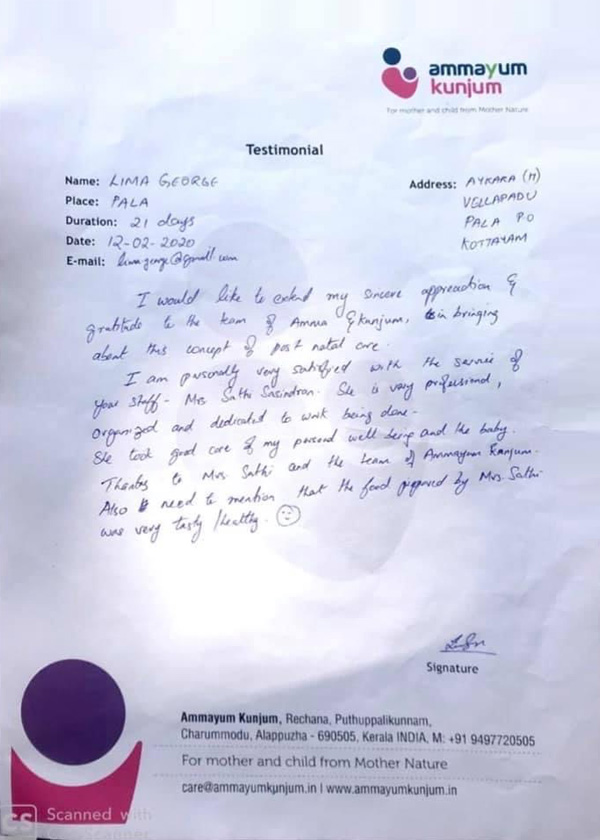 ammayum
kunjum
For mother and child from Mother Nature
Testimonial
Name: LIMA GEORGE
Place: PALA
Duration: 21 days
Date: 12-02-2020
E-mail: limageorge@gmail.com
Address: AYKARA (H)
VELLAPADU
PALA PO
KOTTAYAM
I would like to extend my sincere appreaction &
gratitude to the team of Amma & kunjum, in bringing
about this concept of post natal care.
I am personally very satisfied with the service of
your staff - Mrs Sathi Sasindran. She is very profesional,
organized and dedicated to work being done.
She took good care of my personal well being and the baby.
Thanks to Mrs. Sathi and the team of Ammayum Kunjum.
Also need to mention that the food prepared by Mrs. Sathi
was very tasty /healthy.
Signature
Ammayum Kunjum, Rechana, Puthuppalikunnam,
Charummodu, Alappuzha - 690505, Kerala INDIA, M: +91 9497720505
For mother and child from Mother Nature
care@ammayumkunjum.in | www.ammayumkunjum.in
CS Scanned with
Scanner